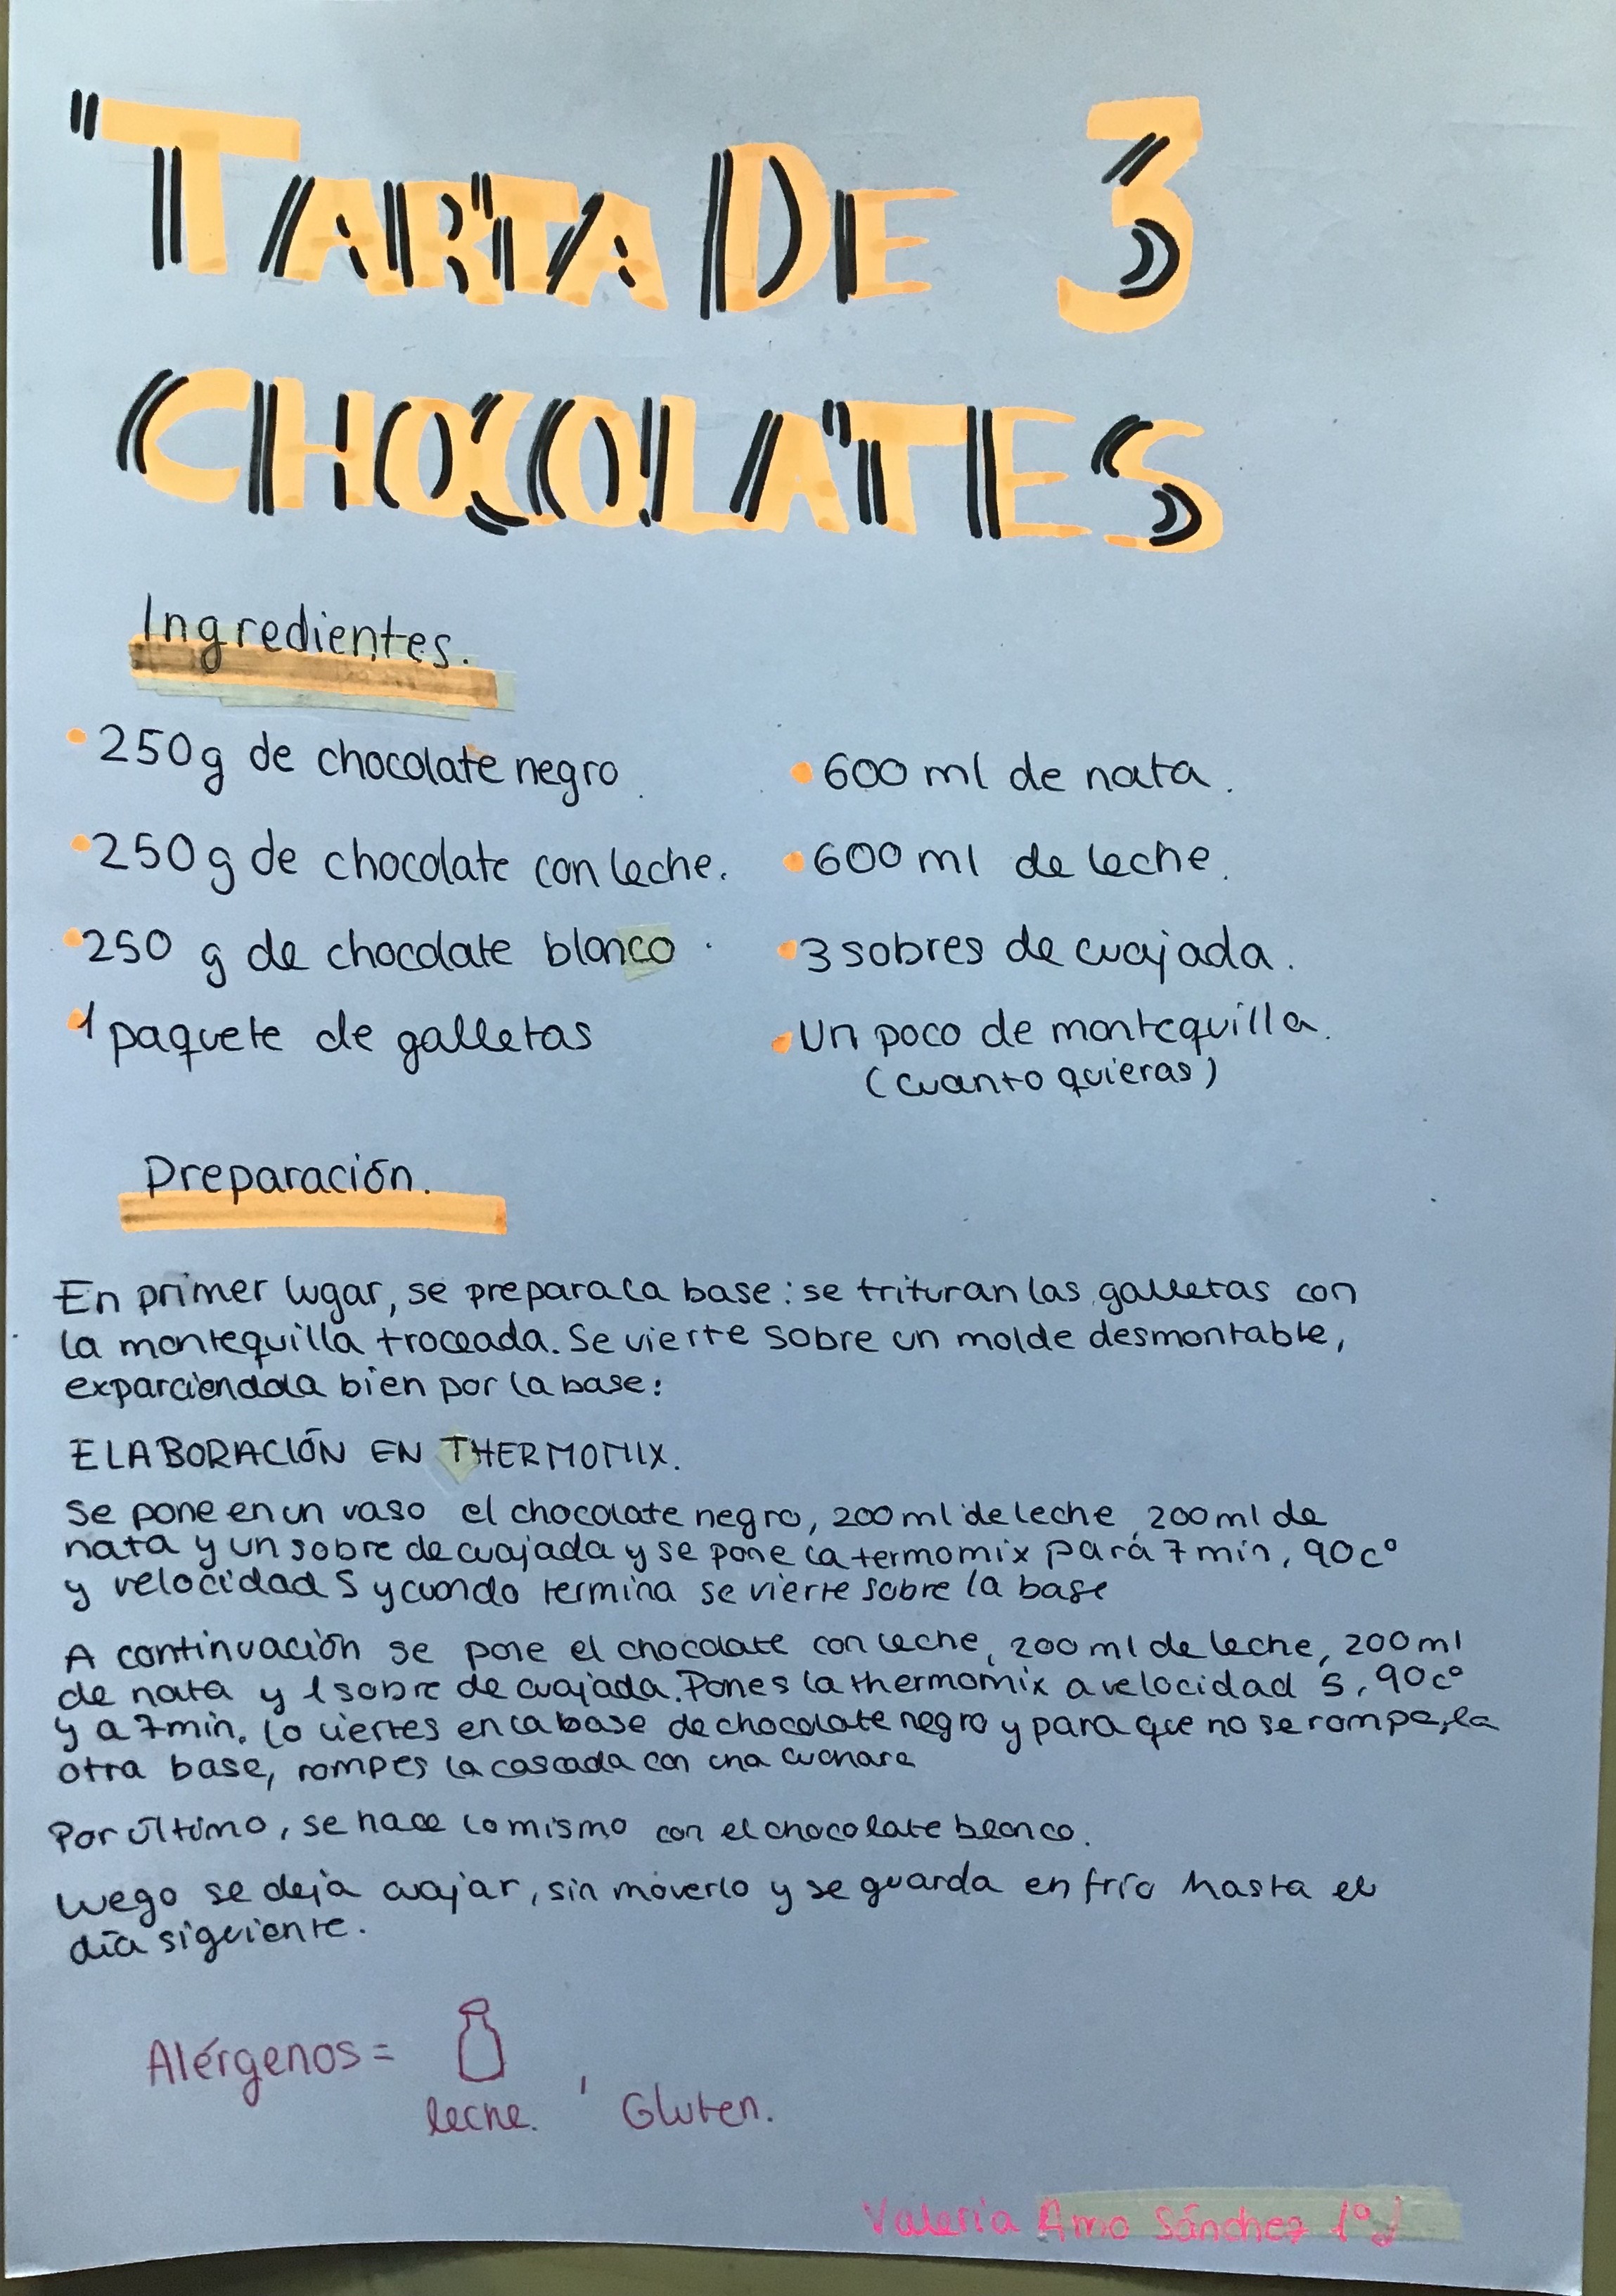 "TARTA DE 3
CHOCOLATES
Ingredientes.
• 250g de chocolate negro.
• 250g de chocolate con leche.
• 250 g de chocolate blanco.
• 1 paquete de galletas
• 600 ml de nata.
• 600 ml de leche.
• 3 sobres de cuajada.
• Un poco de mantequilla.
(cuanto quieras)
Preparación.
En primer lugar, se prepara la base: se trituran las galletas con
la mantequilla troceada. Se vierte sobre un molde desmontable,
exparciendola bien por la base:
ELABORACIÓN EN THERMOMIX.
Se pone en un vaso el chocolate negro, 200 ml de leche, 200 ml de
nata y un sobre de cuajada y se pone la termomix para 7 min, 90 cº
y velocidad 5 y cuando termina se vierte sobre la base
A continuación se pone el chocolate con leche, 200 ml de leche, 200 ml
de nata y 1 sobre de cuajada. Pones la thermomix a velocidad 5, 90 cº
y a 7 min. Lo viertes en la base de chocolate negro y para que no se rompa, la
otra base, rompes la cascada con una cuchara
Por último, se hace lo mismo con el chocolate blanco.
Luego se deja cuajar, sin moverlo y se guarda en frío hasta el
día siguiente.
Alérgenos =
leche. , Gluten.
Valeria Amo Sánchez 1ºJ